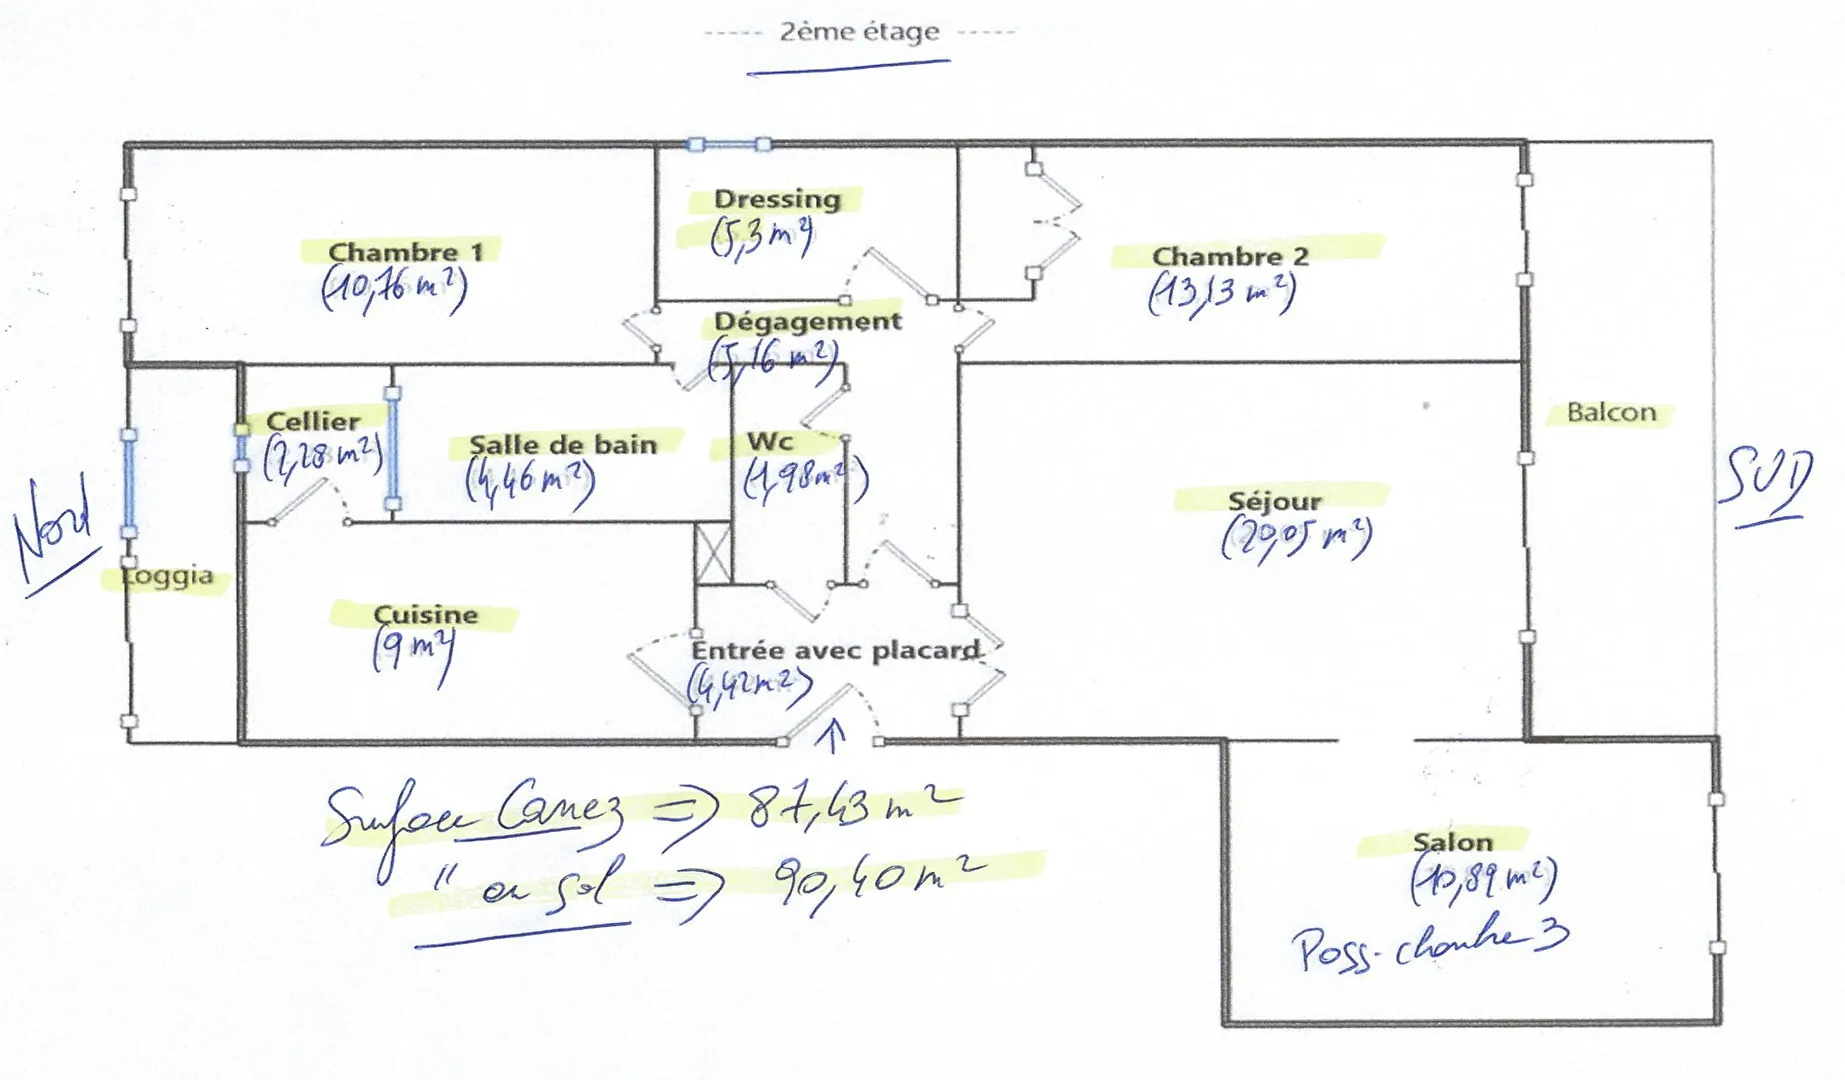 2ème étage
Dressing
(5,3 m²)
Chambre 1
(10,76 m²)
Chambre 2
(13,13 m²)
Dégagement
(5,16 m²)
Cellier
(2,28 m²)
Salle de bain
(4,46 m²)
Wc
(1,98 m²)
Balcon
Séjour
(20,05 m²)
Nord
SUD
Loggia
Cuisine
(9 m²)
Entrée avec placard
(4,42 m²)
Surface Carrez => 87,43 m²
" au sol => 90,40 m²
Salon
(10,89 m²)
Poss. chambre 3